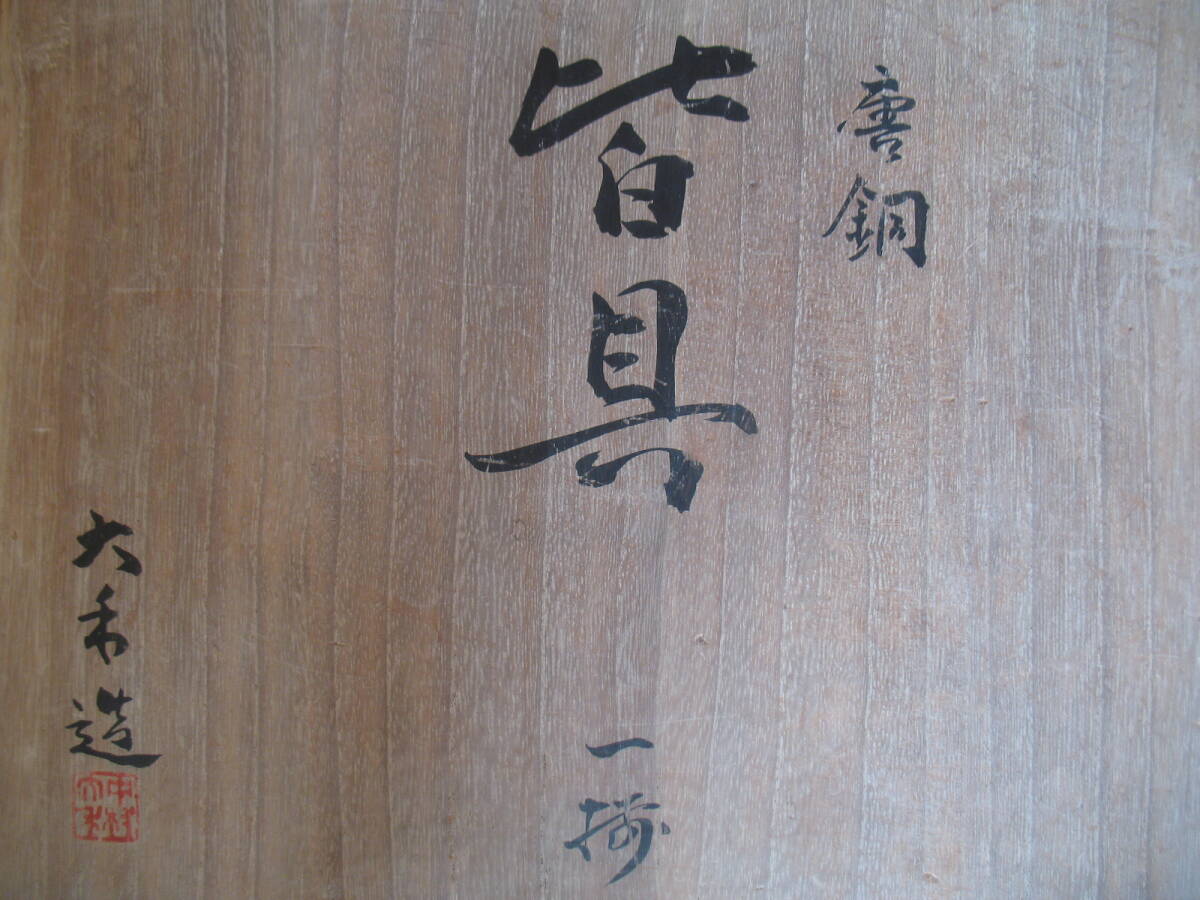 唐銅
皆具
一揃
大禾造